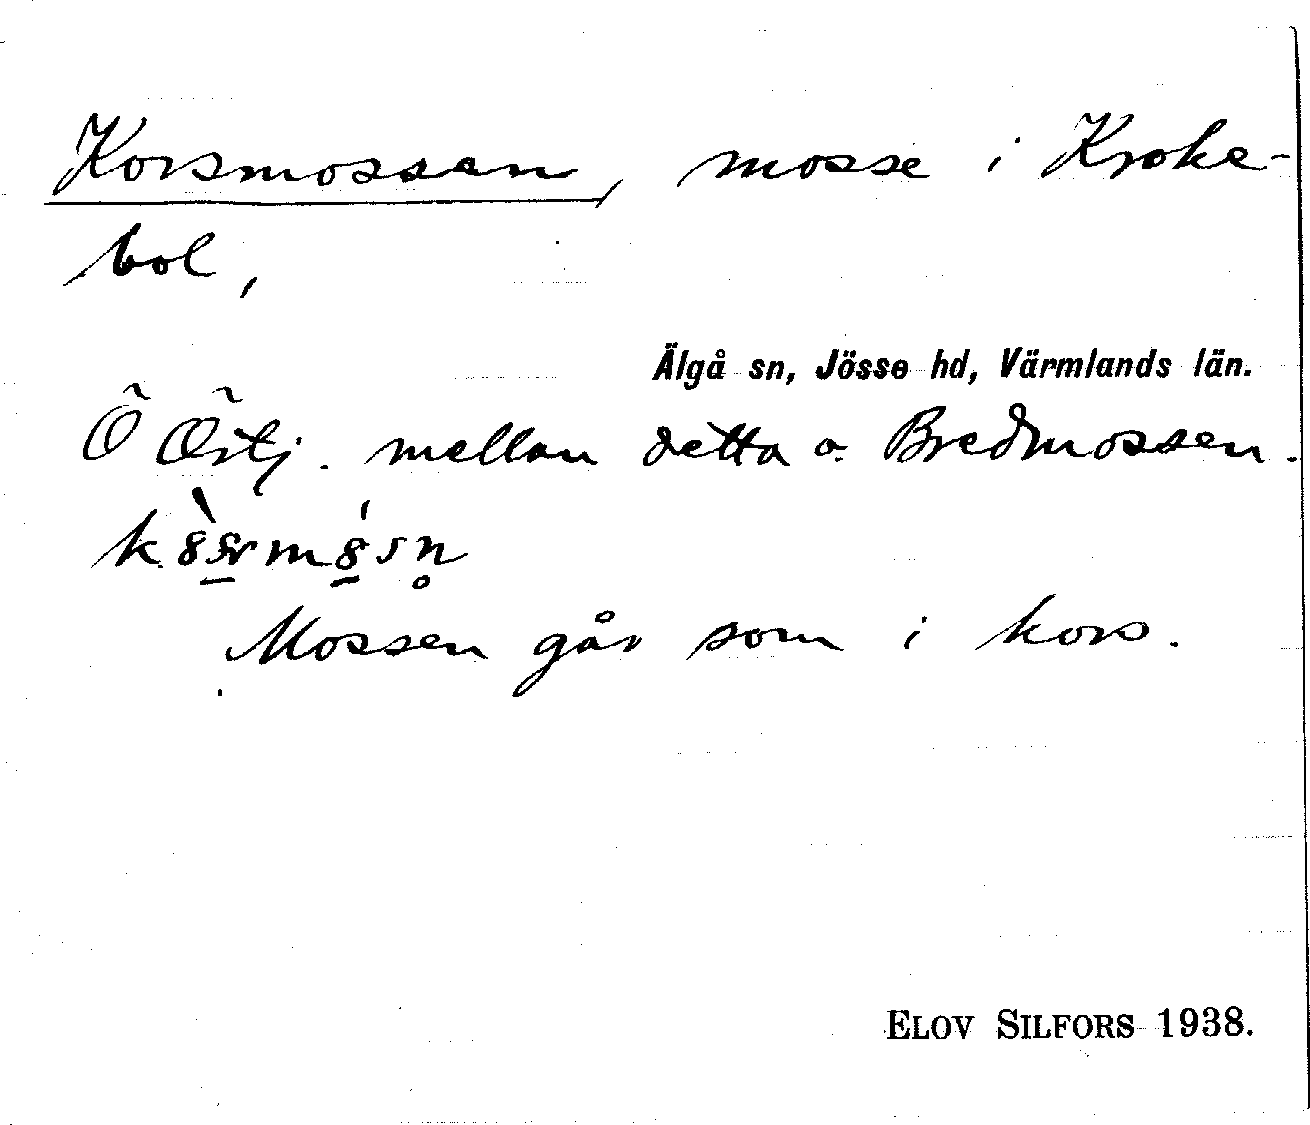 Korsmossen, mosse i Kroke-
bol,
Älgå sn, Jösse hd, Värmlands län.
Ö Örtj. mellan detta o. Bredmossen.
Mossen går som i kors.
ELOV SILFORS 1938.